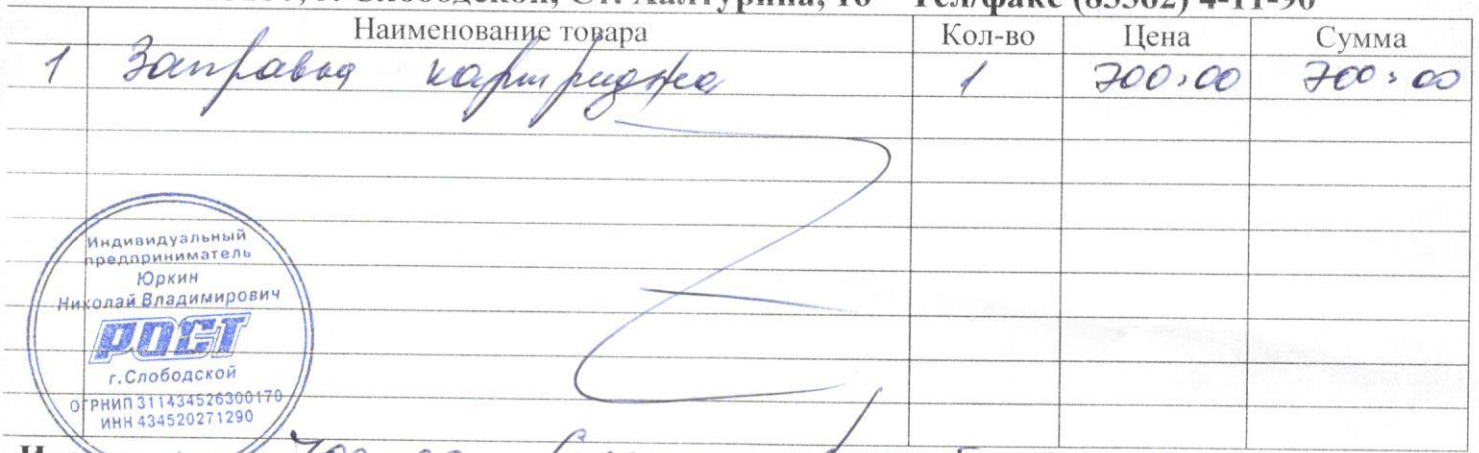 г. Слободской, Ст. Халтурина, 16 Тел/факс (83362) 4-11-90
Наименование товара Кол-во Цена Сумма
1 Заправка картриджа 1 700=00 700=00
Индивидуальный
предприниматель
Юркин
Николай Владимирович
РОСТ
г.Слободской
ОГРНИП 311434526300170
ИНН 434520271290